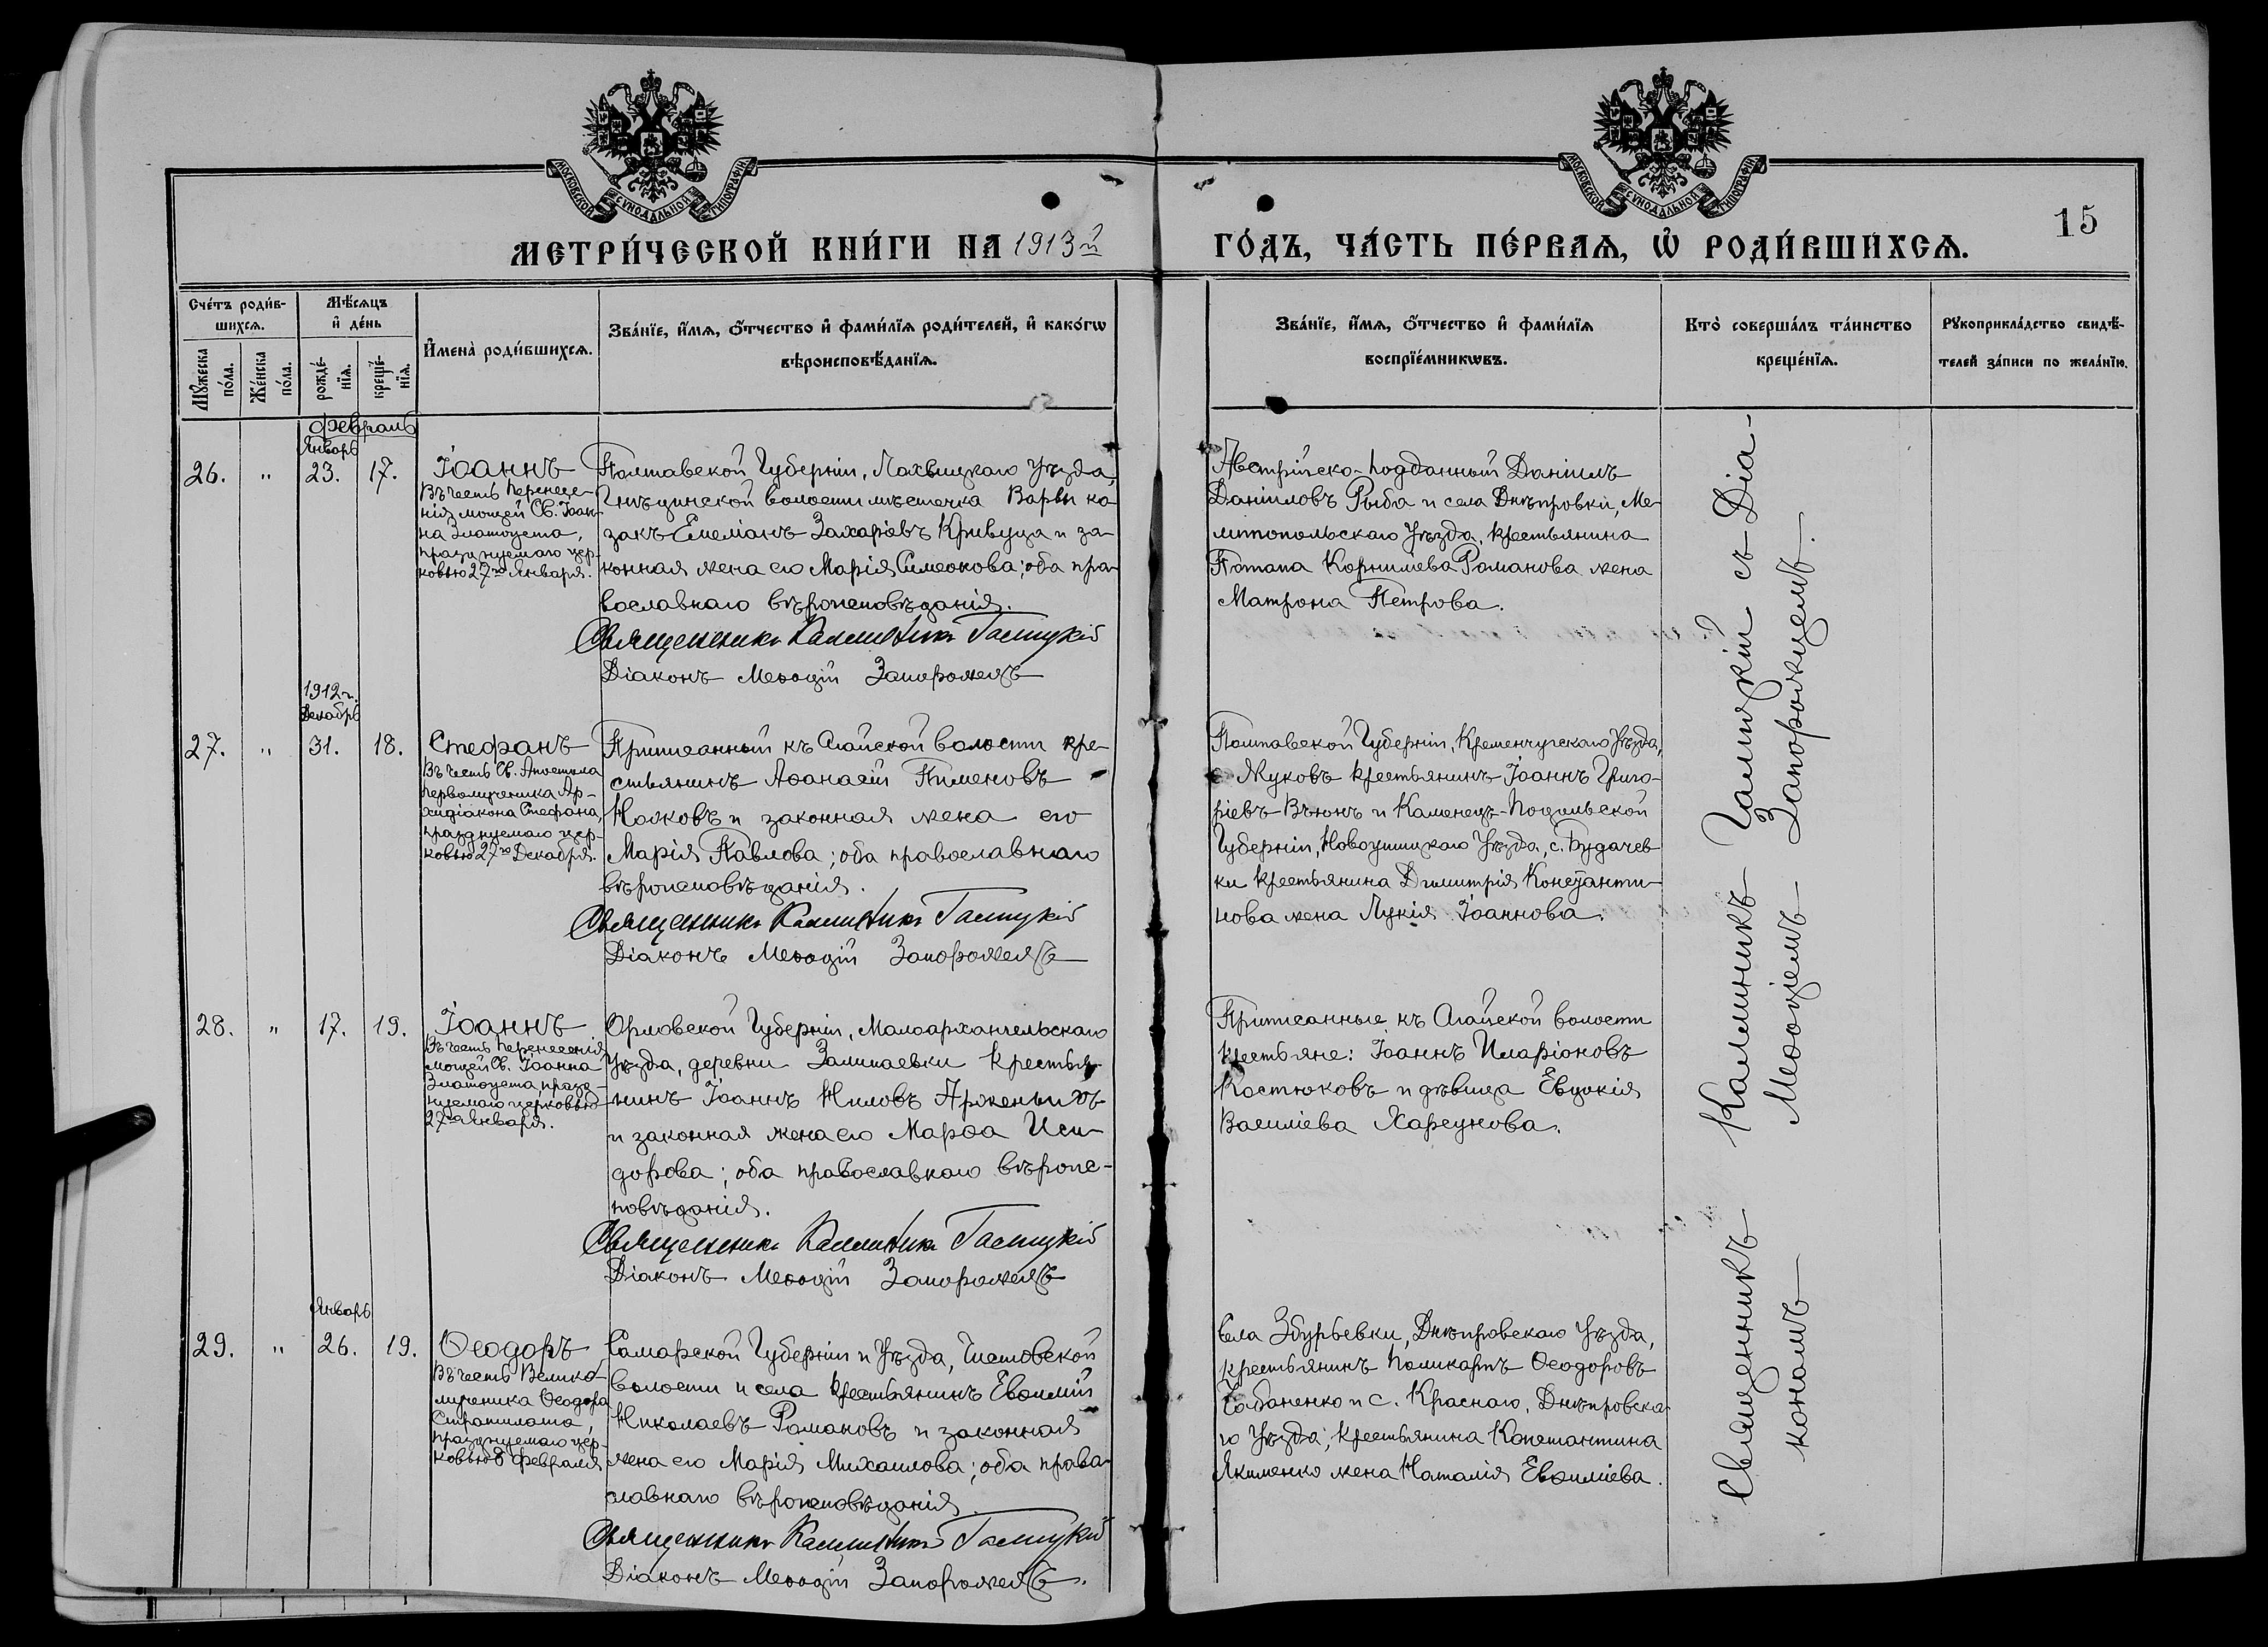 МОСКОВСКОЙ СѴНОДАЛЬНОЙ ТИПОГРАФІИ
МОСКОВСКОЙ СѴНОДАЛЬНОЙ ТИПОГРАФІИ
15
МЕТРИ́ЧЕСКОЙ КНИ́ГИ НА 1913й ГО́ДЪ, ЧА́СТЬ ПЕ́РВАѦ, Ѡ҆ РОДИ́ВШИХСѦ.
Сче́тъ роди́в-
шихсѧ.
Мѣ́сѧцъ
и҆ де́нь
Мꙋ́жеска
по́ла.
Же́нска
по́ла.
рожде́-
нїѧ.
креще́-
нїѧ.
И҆мена̀ роди́вшихсѧ.
Зва́нїе, и҆́мѧ, ѻ҆́тчество и҆ фами́лїѧ роди́телей, и҆ како́гѡ
вѣроисповѣ́данїѧ.
Зва́нїе, и҆́мѧ, ѻ҆́тчество и҆ фами́лїѧ
воспрїе́мникѡвъ.
Кто̀ соверша́лъ та́инство
креще́нїѧ.
Рꙋкоприкла́дство свидѣ́-
телей за́писи по жела́нїю.
Февраль
Январь
26. " 23. 17.
Іоаннъ
Въ честь перенесе-
нія мощей Св. Іоан-
на Златоуста,
празднуемаго цер-
ковью 27го Января.
Полтавской Губерніи, Лохвицкаго Уѣзда,
Гнѣдинской волости мѣстечка Варвы ка-
закъ Емеліанъ Захаріевъ Кривуца и за-
конная жена его Марія Симеонова; оба пра-
вославнаго вѣроисповѣданія.
Священникъ Каллиникъ Галицкій
Діаконъ Меѳодій Запорожецъ
Австрійско-подданный Даніилъ
Даніиловъ Рыба и села Днѣпровки, Ме-
литопольскаго Уѣзда, крестьянина
Потапа Корнилiева Романова жена
Матрона Петрова.
1912 г.
Декабрь
27. " 31. 18.
Стефанъ
Въ честь Св. Апостола
Первомученика Ар-
хидіакона Стефана,
празднуемаго цер-
ковью 27го Декабря.
Приписанный къ Агайской волости кре-
стьянинъ Аѳанасій Пименовъ
Носковъ и законная жена его
Марія Павлова; оба православнаго
вѣроисповѣданія.
Священникъ Каллиникъ Галицкій
Діаконъ Меѳодій Запорожецъ
Полтавской Губерніи, Кременчугскаго Уѣзда,
с. Жуковъ крестьянинъ Іоаннъ Григо-
ріевъ Вьюнъ и Каменецъ-Подольской
Губерніи, Новоушицкаго Уѣзда, с. Будачев-
ки крестьянина Димитрія Константи-
нова жена Лукія Іоаннова.
28. " 17. 19.
Іоаннъ
Въ честь перенесенія
мощей Св. Іоанна
Златоуста, празд-
нуемаго церковью
27го Января.
Орловской Губерніи, Малоархангельскаго
Уѣзда, деревни Залипаевки крестья-
нинъ Іоаннъ Ниловъ
и законная жена его Марѳа Иси-
дорова; оба православнаго вѣроис-
повѣданія.
Священникъ Каллиникъ Галицкій
Діаконъ Меѳодій Запорожецъ
Приписанные къ Агайской волости
крестьяне: Іоаннъ Иларіоновъ
Костюковъ и дѣвица Евдокія
Василіева Харсунова.
Январь
29. " 26. 19.
Ѳеодоръ
Въ честь Велико-
мученика Ѳеодора
Стратилата,
празднуемаго цер-
ковью 8 Февраля
Самарской Губерніи и Уѣзда, Чистовской
волости и села крестьянинъ Евѳимій
Николаевъ Романовъ и законная
жена его Марія Михаилова; оба право-
славнаго вѣроисповѣданія.
Священникъ Каллиникъ Галицкій
Діаконъ Меѳодій Запорожецъ.
Села Збурьевки, Днѣпровскаго Уѣзда,
крестьянинъ Поликарпъ Ѳеодоровъ
Чабаненко и с. Краснаго, Днѣпровска-
го Уѣзда, крестьянина Константина
Якименко жена Наталія Евѳиміева.
Священникъ Каллиникъ Галицкій съ Діа-
кономъ Меѳодіемъ Запорожцемъ.